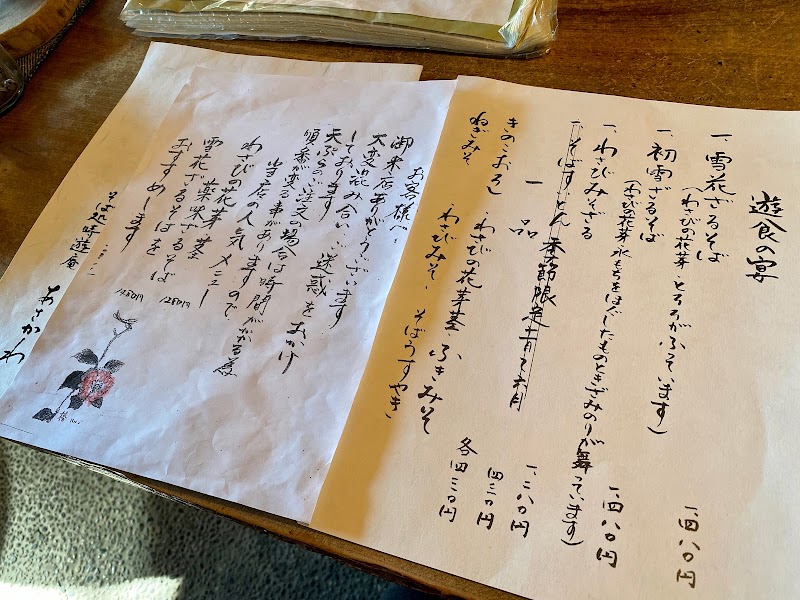 遊食の宴
一、雪花ざるそば
(わさびの花芽・とろろがふっています)
一四八〇円
一、初雪ざるそば
(わさびの花芽、氷もちをほぐしたものときざみのりが舞っています)
一、四八〇円
一、わさびみそざる
一、二八〇円
一、そばすいとん 季節限定
四三〇円
一品
各四三〇円
きのこおろし
・わさびの花芽茎・ふきみそ
ねぎみそ
・わさびみそ・そばうすやき
お客様へ
御来店ありがとうございます
大変混み合い、ご迷惑をおかけ
しております
天ぷらのご注文の場合は時間がかかる為
順番が変る事があります
当店の人気メニュー
わさびの花芽茎
雪花ざるそば
葉とろざるそばを
おすすめします
そば処 時遊庵
あさかわ